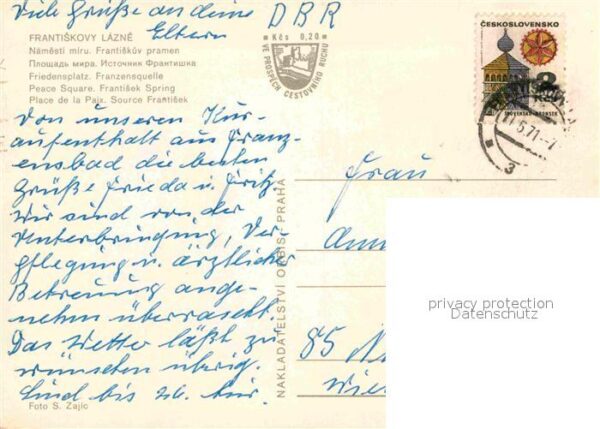 Viele Grüße an deine
Eltern
DBR
FRANTIŠKOVY LÁZNĚ
Náměstí míru. Františkův pramen
Площадь мира. Источник Франтишка
Friedensplatz. Franzensquelle
Peace Square. František Spring
Place de la Paix. Source František
Kčs 0,20
VE PROSPĚCH CESTOVNÍHO RUCHU
ČESKOSLOVENSKO
SLOVENSKO-HRONSEK
.5.71-7
3
Von unseren Kur-
aufenthalt aus Franz-
ensbad die besten
Grüße Frieda u. Fritz.
Wir sind von der
Unterbringung, Ver-
pflegung u. ärztlicher
Betreuung ange-
nehm überrascht.
Das Wetter läßt zu
wünschen übrig.
Sind bis 26. hier.
Foto S. Zajíc
NAKLADATELSTVÍ ORBIS, PRAHA
Frau
85
privacy protection
Datenschutz